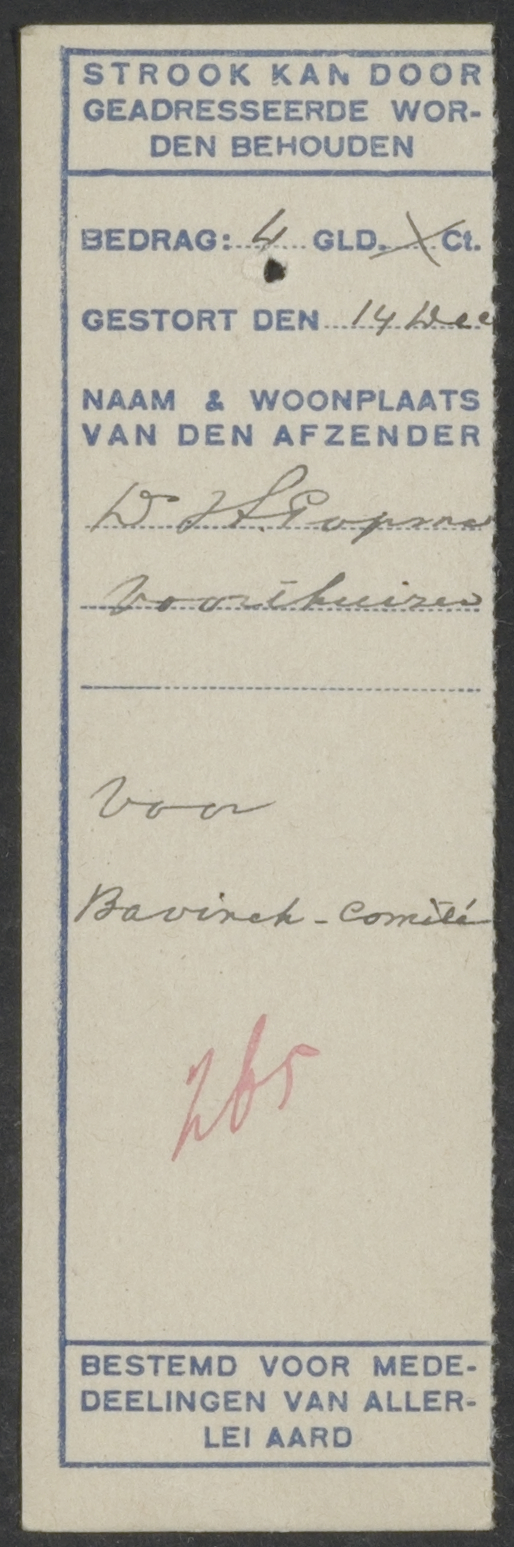 STROOK KAN DOOR
GEADRESSEERDE WOR-
DEN BEHOUDEN
BEDRAG: 4 GLD. X Ct.
GESTORT DEN 14 Dec
NAAM & WOONPLAATS
VAN DEN AFZENDER
Dr H. Popma
Voorthuizen
voor
Bavinck-Comité
265
BESTEMD VOOR MEDE-
DEELINGEN VAN ALLER-
LEI AARD